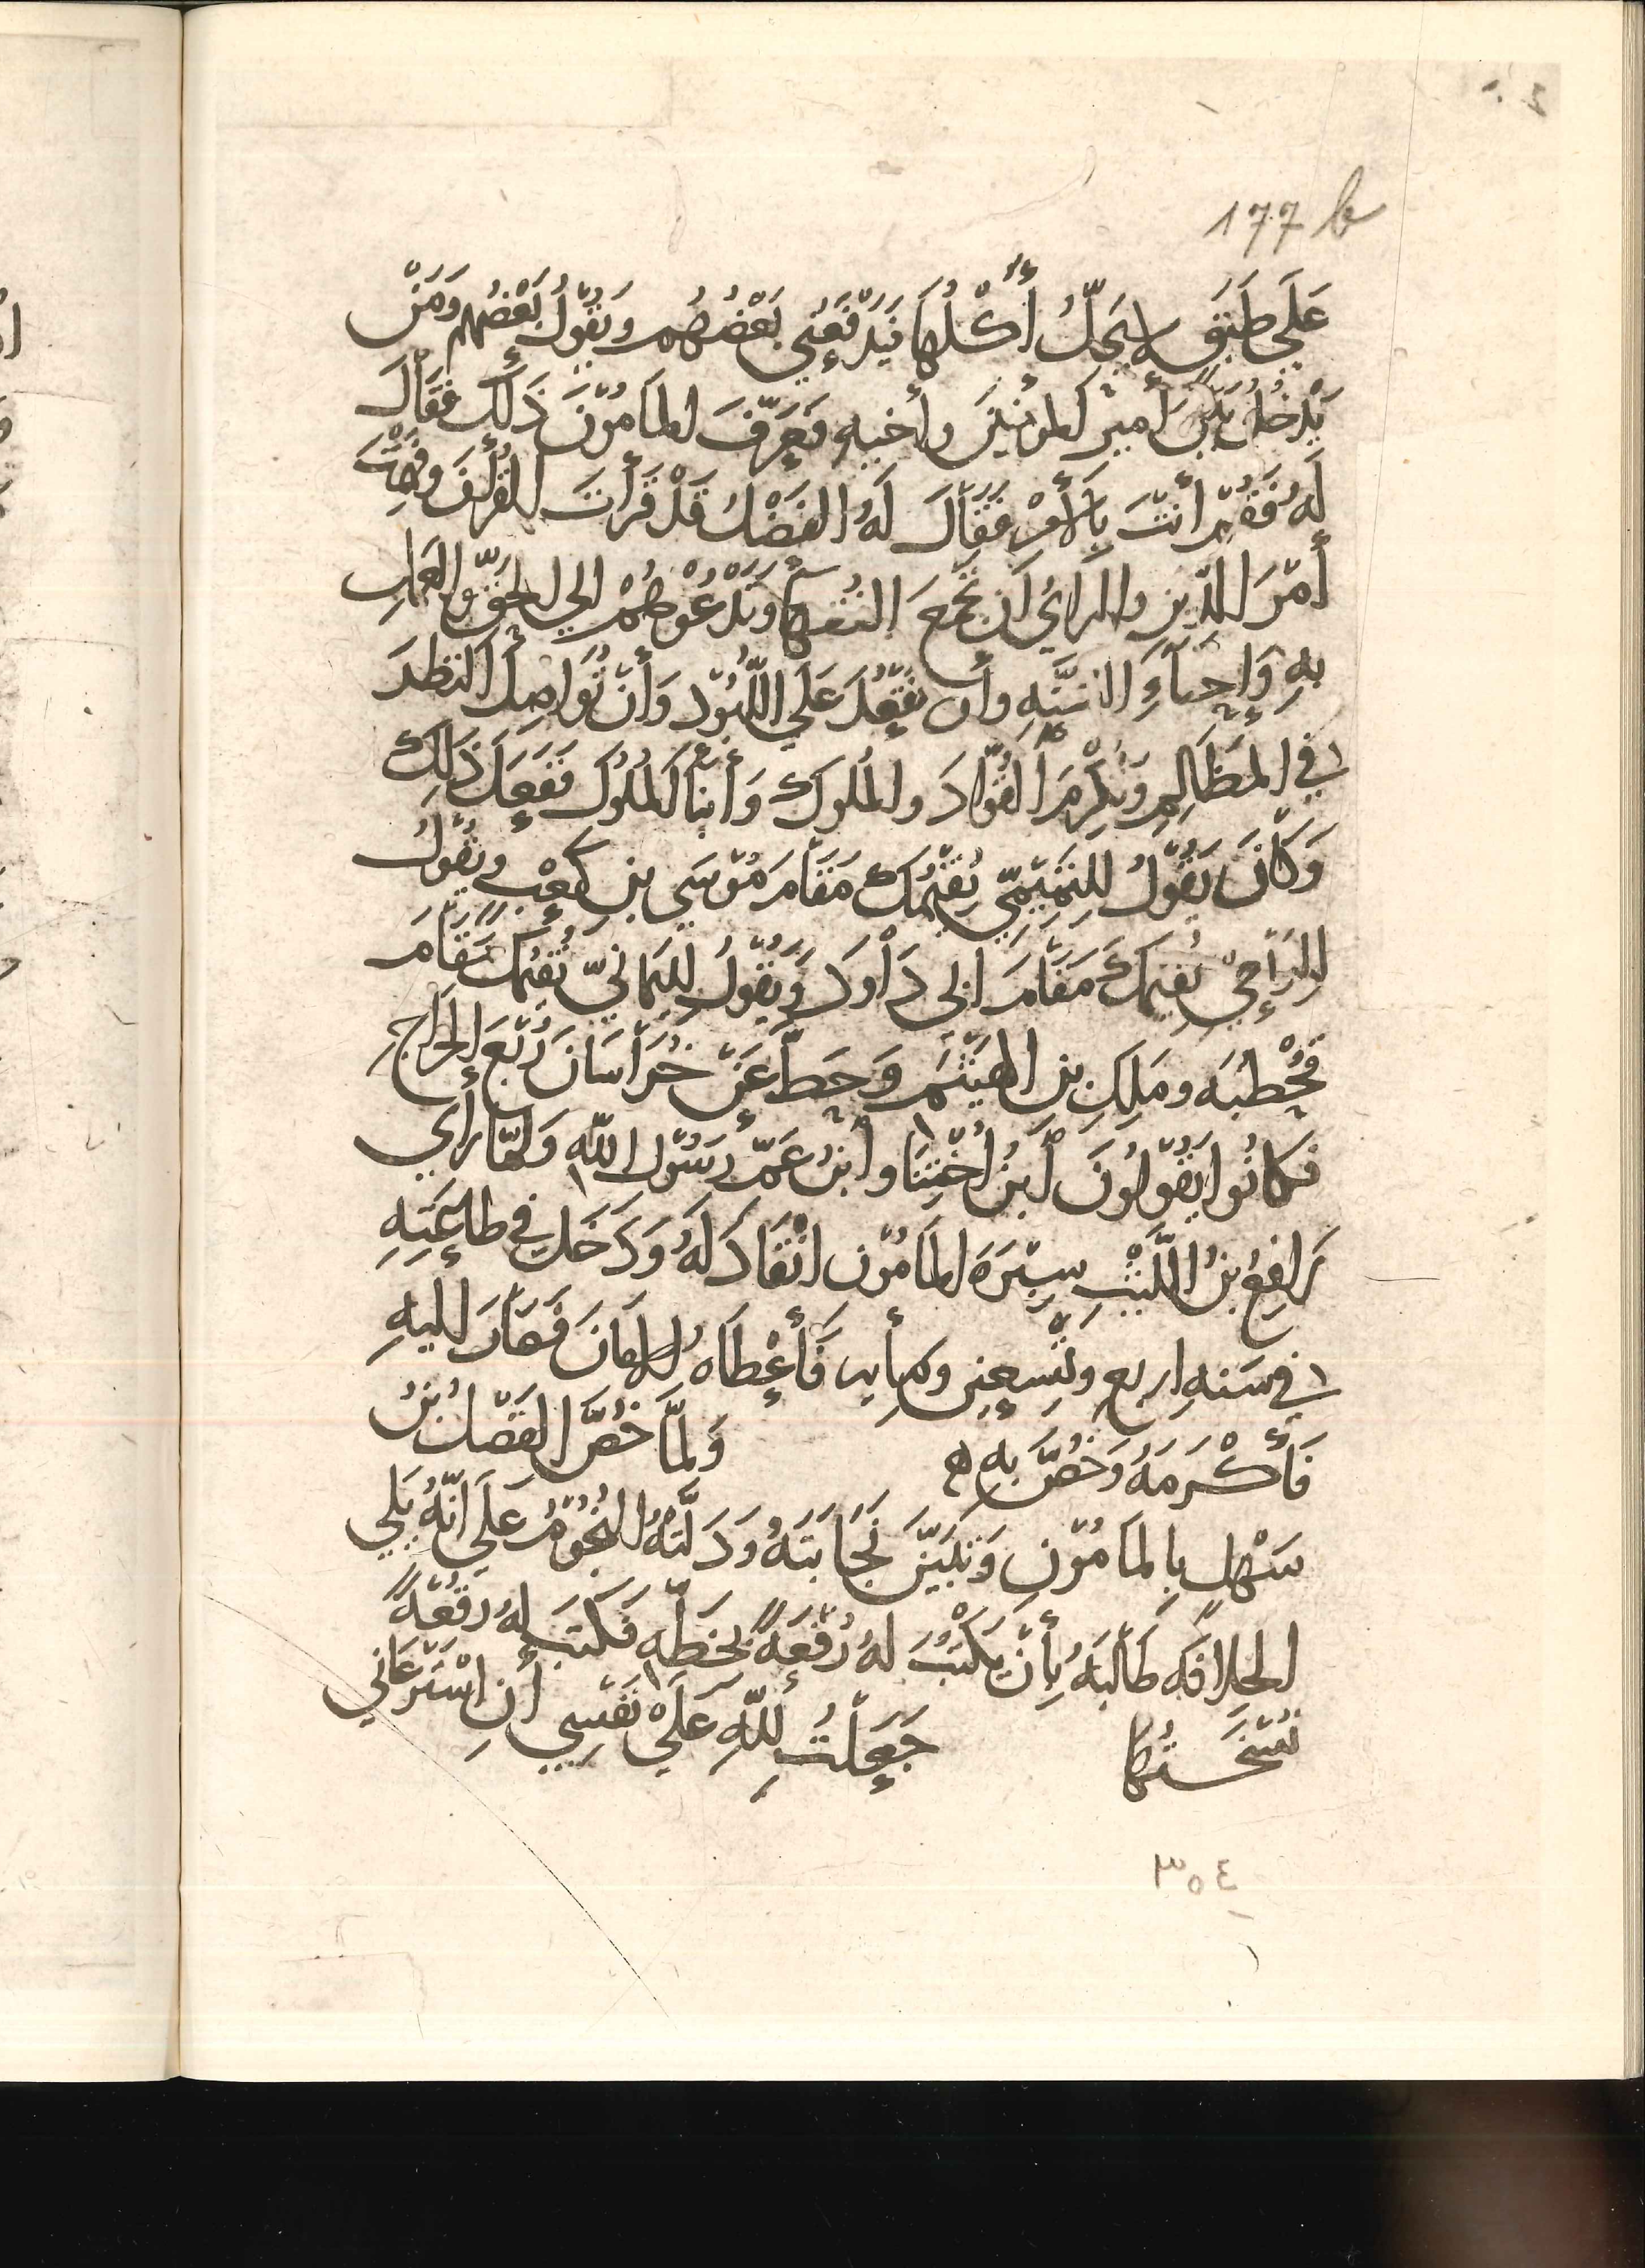 177 b
عَلَي طَبَقٍ لا يَحِلّ أَكْلُهَا فَيَدْفَعُنِي بَعْضُهُم وَيَقُولُ بَعْضُهُم وَمَنْ
يَدْخُلُ بَيْنَ أَمِيرِ المؤمنِينَ وأَخيهِ فَعَرَّفَ المَامُونَ ذَلِكَ فَقَالَ
لَهُ فَقُمْ أَنْتَ بِالأَمْرِ فَقَالَ لَهُ الفَضْلُ قَدْ قَرَأتَ القُرْآنَ وفَهِمْتَ
أَمْرَ الدِّينِ والرايُ أن تَجْمَعَ الفُقَهَآ وتَدْعُوهُمْ الي الحَقِّ والعَمَلِ
بِهِ وَإِحيَاءِ السُّنَّهِ وأَن تَقْعُدَ عَلَي اللُّبُودِ وَأَنْ تُوَاصِلَ النَظَرَ
في المَظَالِمِ وَتُكْرِمَ القُوَّادَ والمُلوكَ وَأَبنَآ المُلُوكِ فَفَعَلَ ذَلِكَ
وَكَانَ يَقُولُ للتَمِيمِيِّ نُقِيمُكَ مَقَامَ مُوسَي بن كَعْبٍ ويَقُولُ
للرَبَعِيِّ نُقِيمُكَ مَقَامَ ابى دَاوُدَ وَيَقُولُ لليَمَانيِّ نُقِيمُكَ مَقَامَ
قَحْطَبَه ومَلِكِ بن الهَيْثَمِ وَحَطَّ عَنْ خُرَاسَانَ رُبْعَ الخَرَاجِ
فكانُوا يَقُولُونَ اَبنُ اُخْتِنَا وابنُ عَمِّ رَسُولِ اللّهِ وَلمَّا رَأَي
رَافِعُ بنُ اللَّيْثِ سِيْرَةَ المَامُونِ انْقَادَ لَهُ وَدَخَلَ في طاعَتِهِ
في سَنهِ اربعٍ وتِسعِينِ ومِأيه فَأَعْطَاهُ الامَانَ فَصَارَ اليهِ
فَأَكْرَمَهُ وَخُصَّ بِهِ ه وَلمَّا خُصَّ الفَضْلُ بنُ
سَهْلٍ بِالمَامُونِ وَتَبَيَّنَ نَجَابَتَهُ وَدَلَّتْهُ النُجُومُ عَلَي اَنَّهُ يَلي
الخِلافَه طَالَبَهُ بِأَنْ يَكْتُبَ لهُ رُقْعَةً بخَطِّه فَكَتَبَ لهُ رُقْعَةً
نُسْخَتُهَا جَعَلْتُ لِلّهِ عَلَي نَفْسِي أَنِ اسْتَرْعَاني
٣٥٤